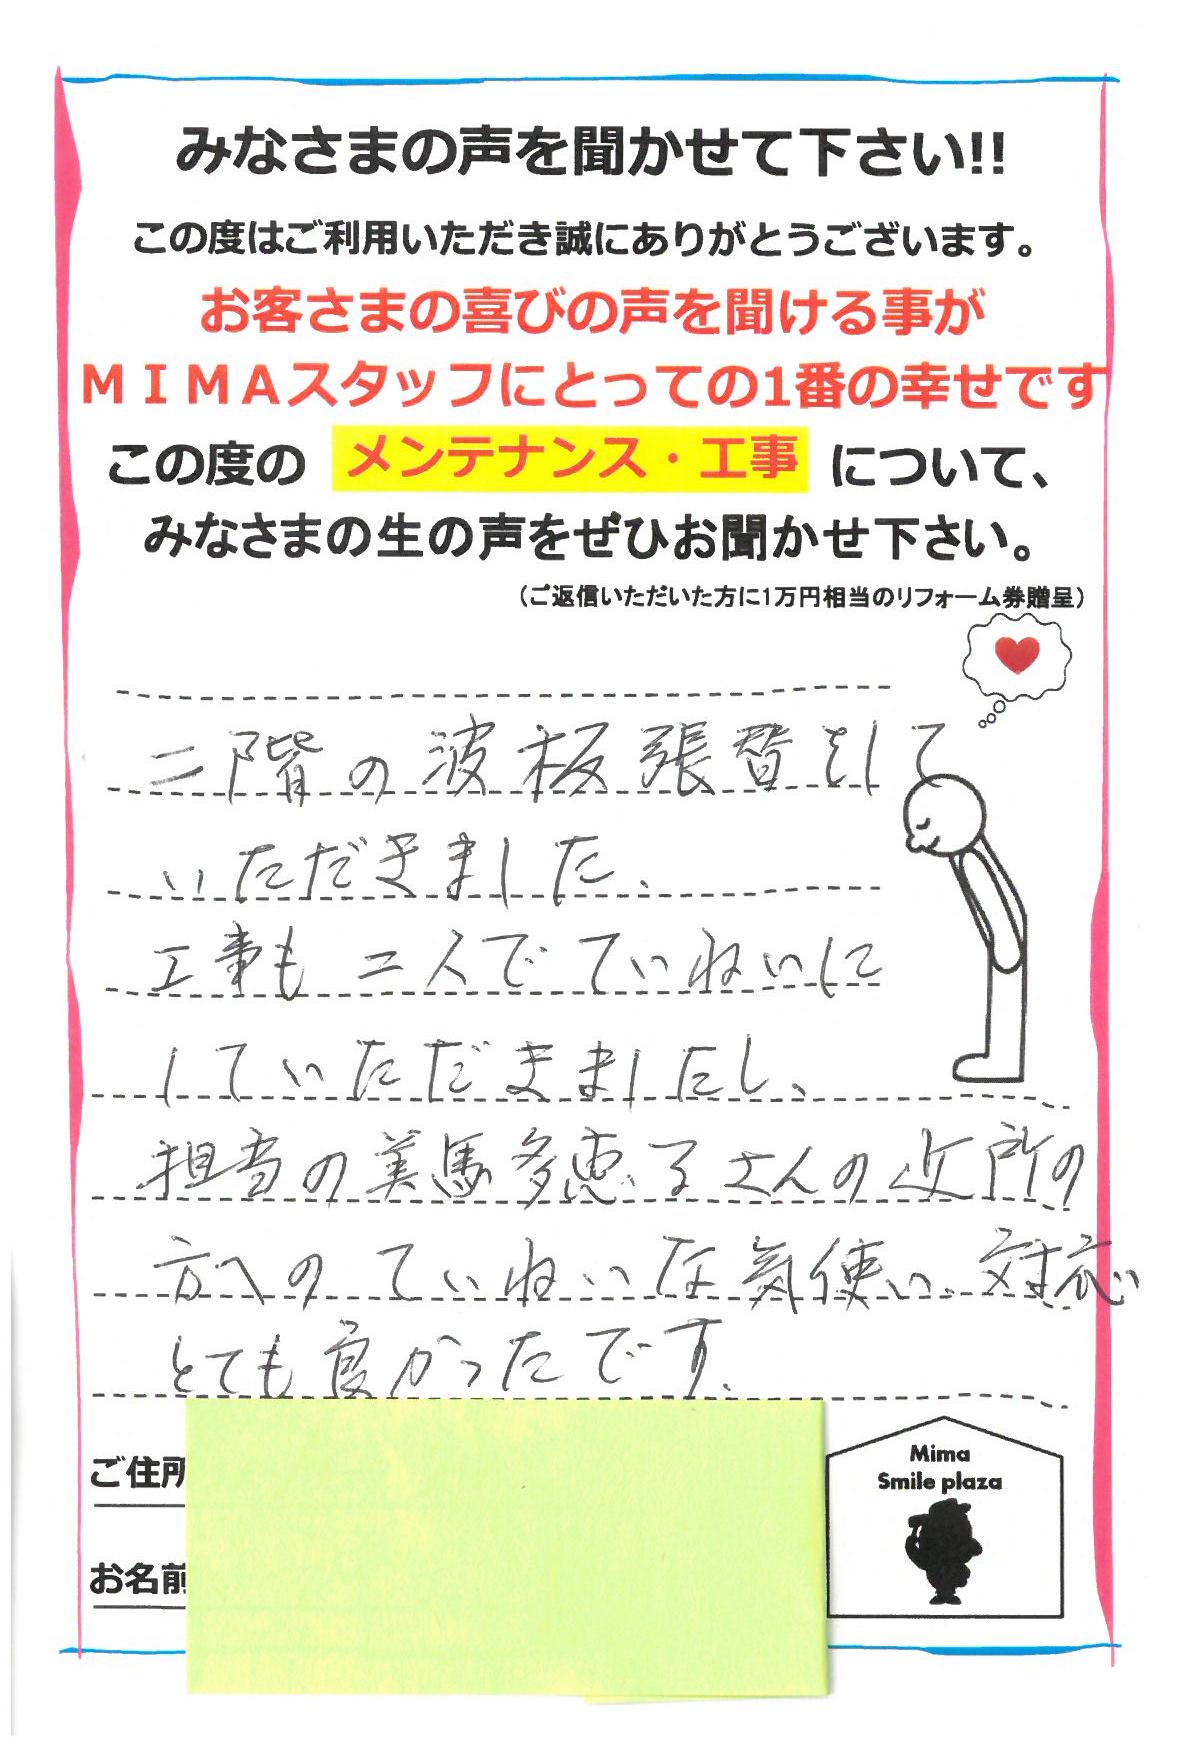 みなさまの声を聞かせて下さい!!
この度はご利用いただき誠にありがとうございます。
お客さまの喜びの声を聞ける事が
ＭＩＭＡスタッフにとっての1番の幸せです
この度の メンテナンス・工事 について、
みなさまの生の声をぜひお聞かせ下さい。
（ご返信いただいた方に1万円相当のリフォーム券贈呈）
二階の波板張替をして
いただきました、
工事も二人でていねいに
していただきましたし、
担当の美馬多恵子さんの近所の
方へのていねいな気使い、対応
とても良かったです、
ご住所
お名前
Mima
Smile plaza